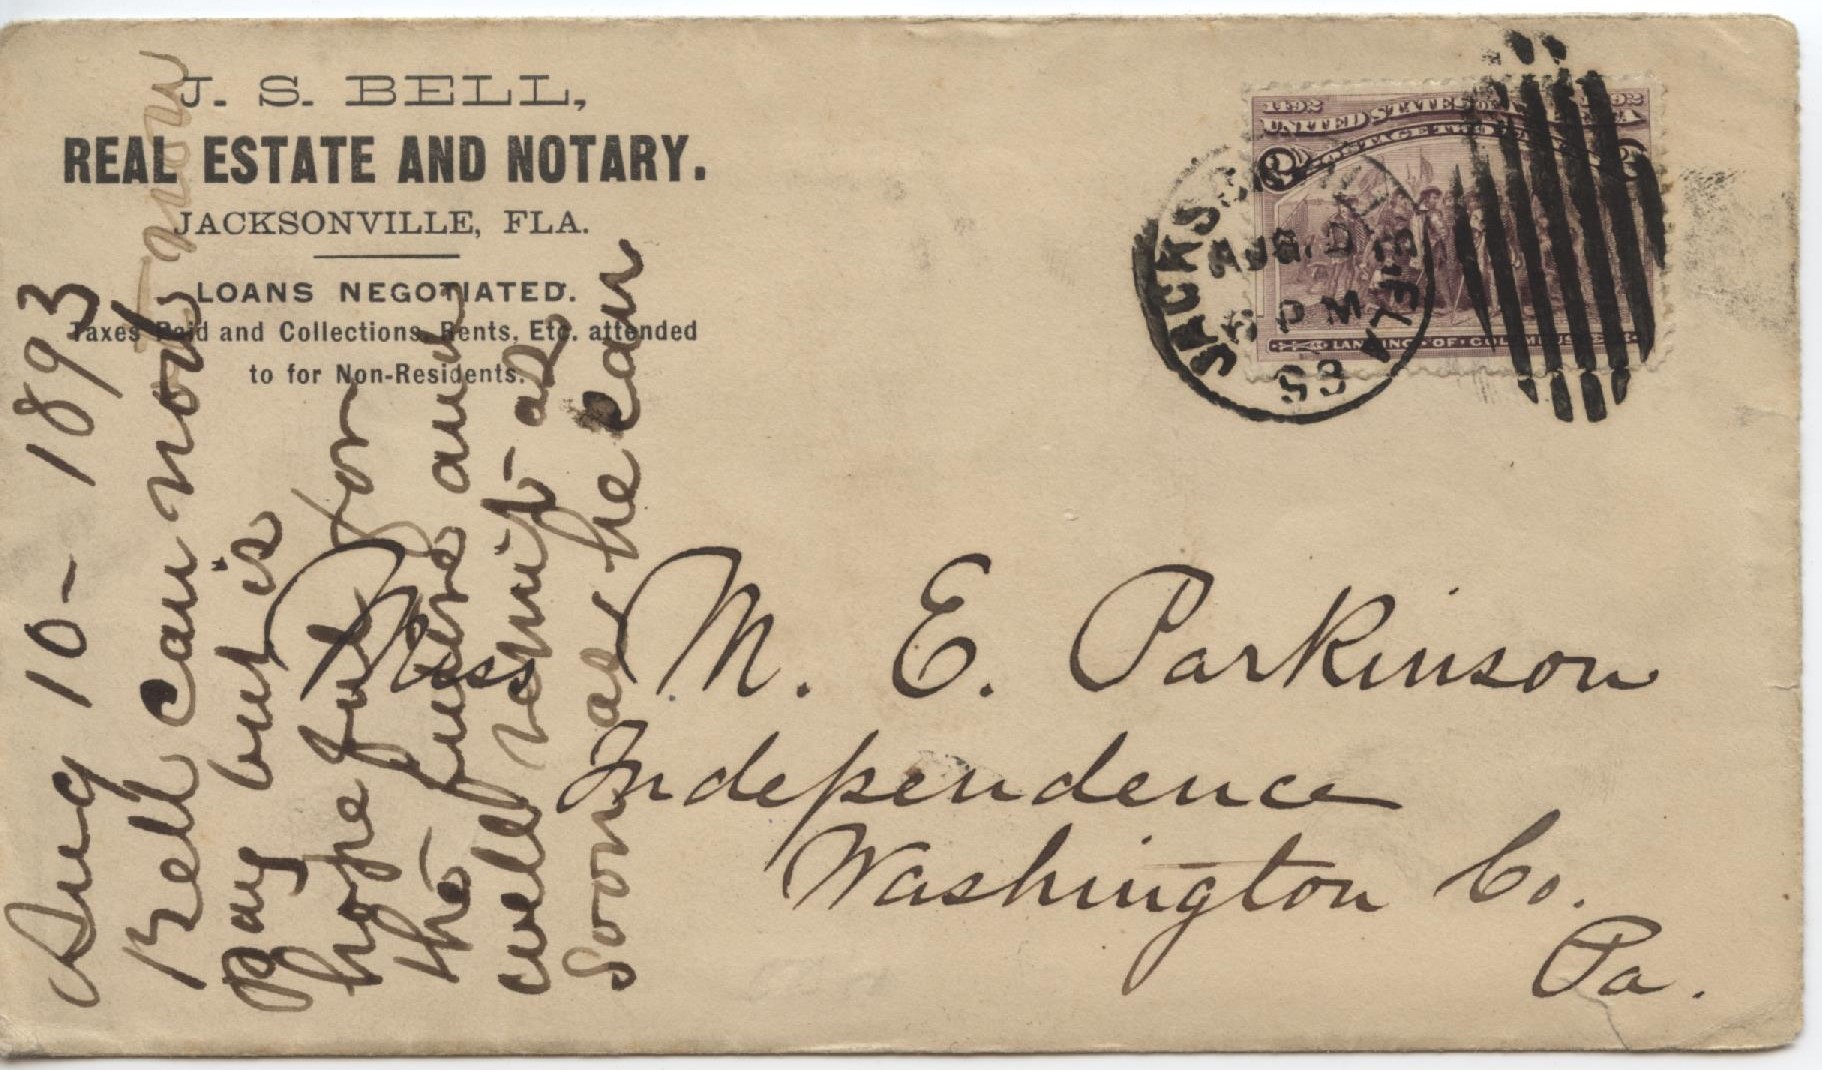 J. S. BELL,
REAL ESTATE AND NOTARY.
JACKSONVILLE, FLA.
LOANS NEGOTIATED.
Taxes Paid and Collections, Rents, Etc. attended
to for Non-Residents.
1492 1892
UNITED STATES OF AMERICA
POSTAGE TWO CENTS
2 2
LANDING OF COLUMBUS
JACKSONVILLE FLA
AUG 10
6 PM
93
Miss M. E. Parkinson
Independence
Washington Co.
Pa.
Aug 10 - 1893
Bell can not now
Pay but is
hope full for
the future and
will remit as
soon as he can